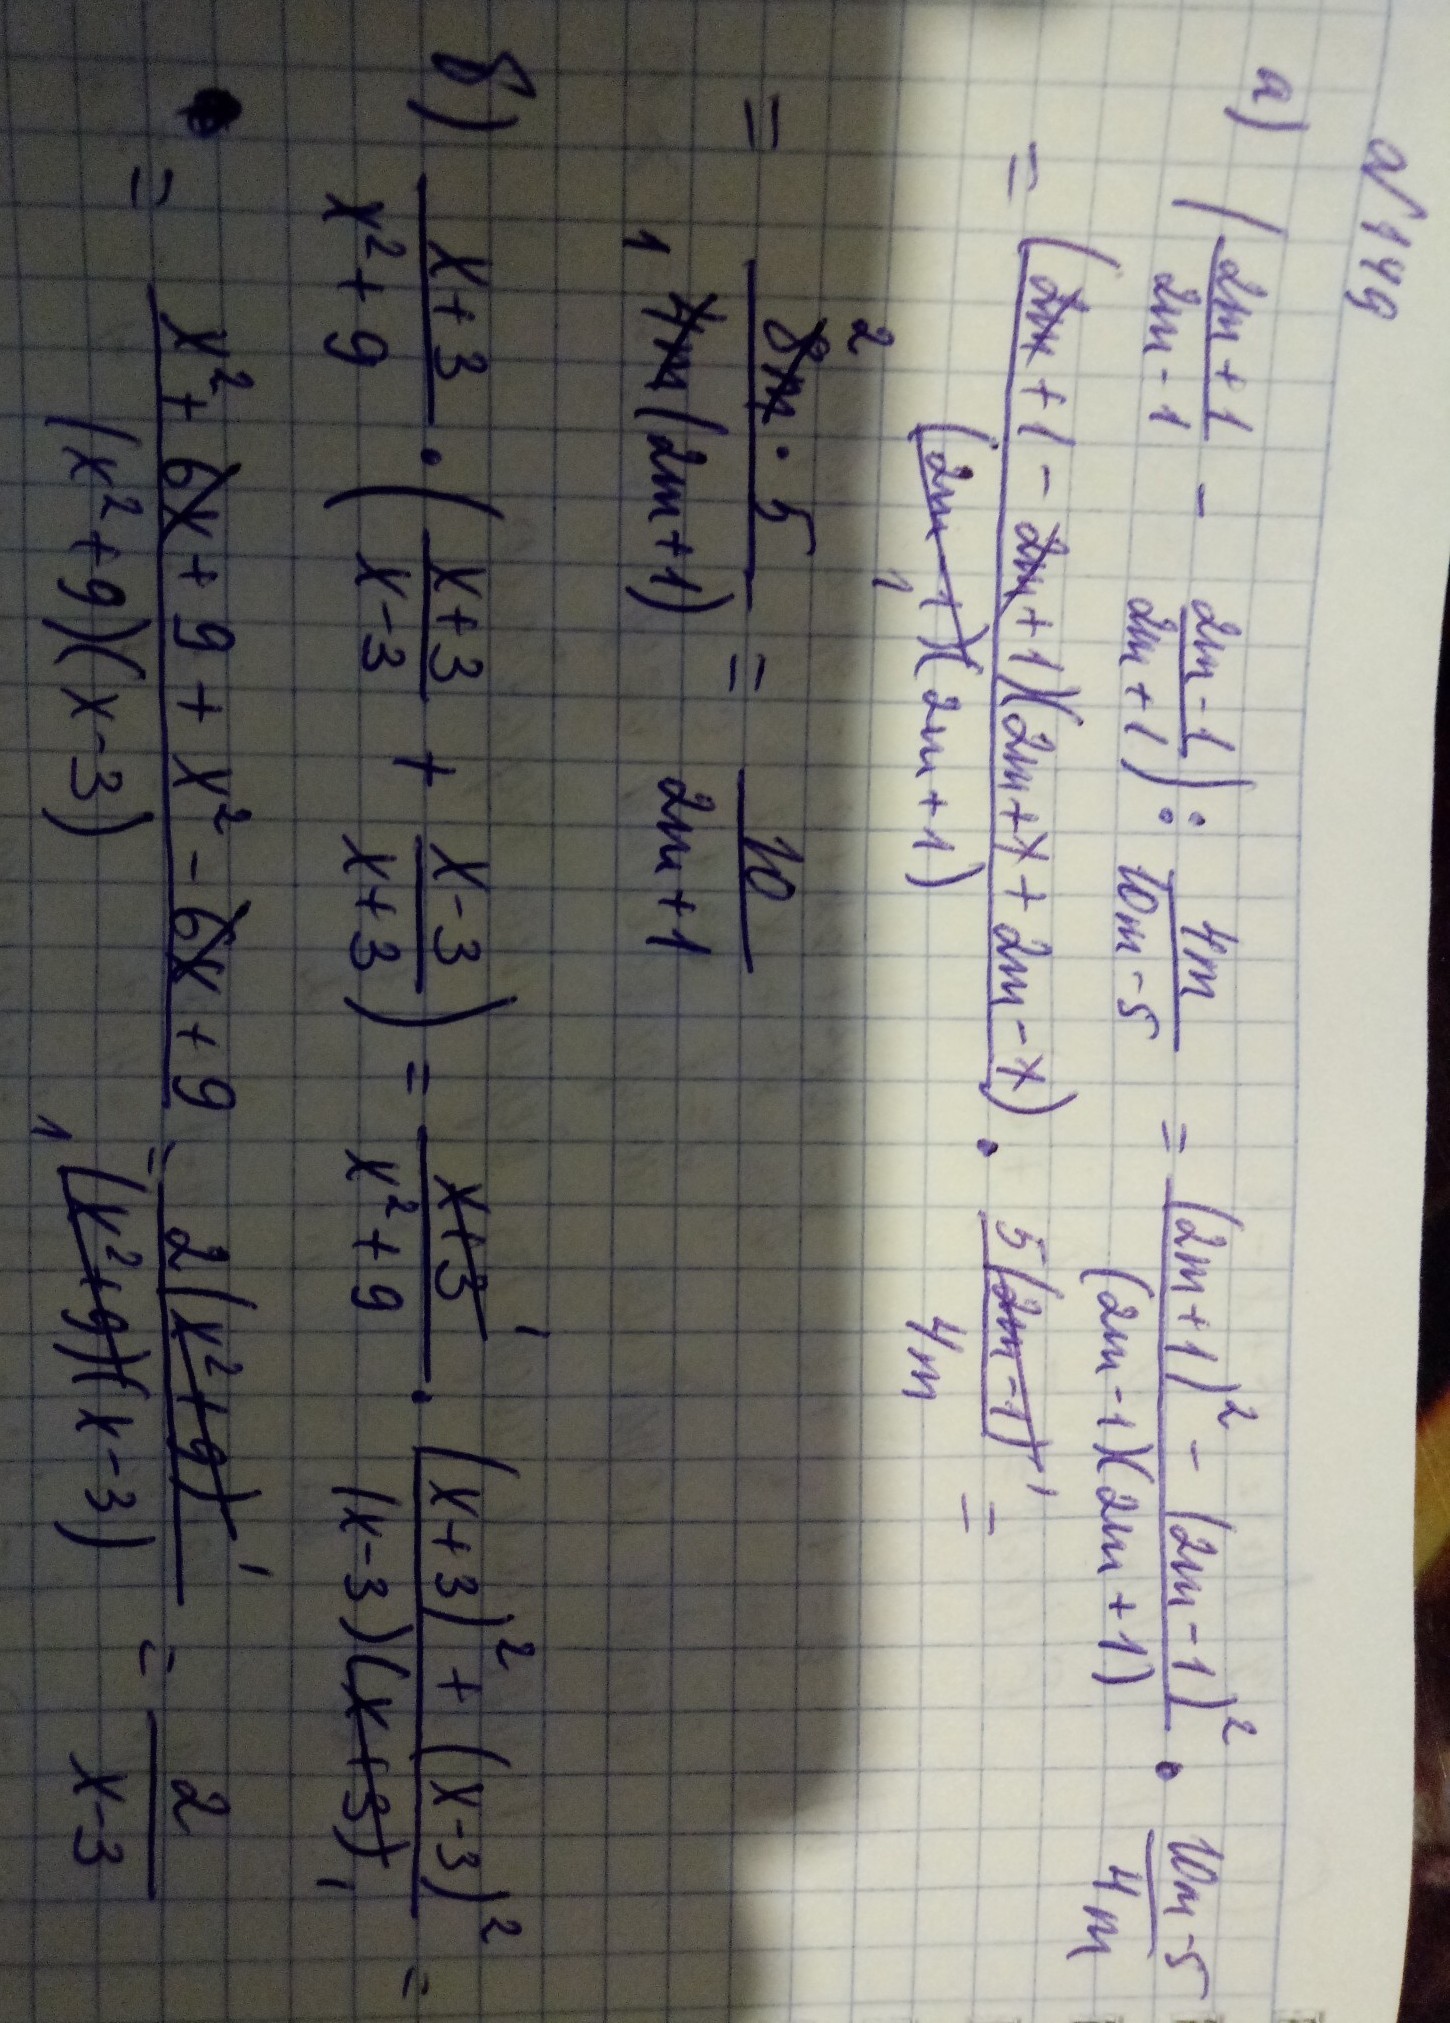 № 149
а) ((2m+1)/(2m-1) - (2m-1)/(2m+1)) : 4m/(10m-5) = ((2m+1)² - (2m-1)²)/((2m-1)(2m+1)) · (10m-5)/4m
= (2m+1-2m+1)(2m+1+2m-1)/((2m-1)(2m+1)) · 5(2m-1)/4m =
= 8m·5/(4m(2m+1)) = 10/(2m+1)
б) (x+3)/(x²+9) · ((x+3)/(x-3) + (x-3)/(x+3)) = (x+3)/(x²+9) · ((x+3)² + (x-3)²)/((x-3)(x+3)) =
= (x²+6x+9+x²-6x+9)/((x²+9)(x-3)) = 2(x²+9)/((x²+9)(x-3)) = 2/(x-3)